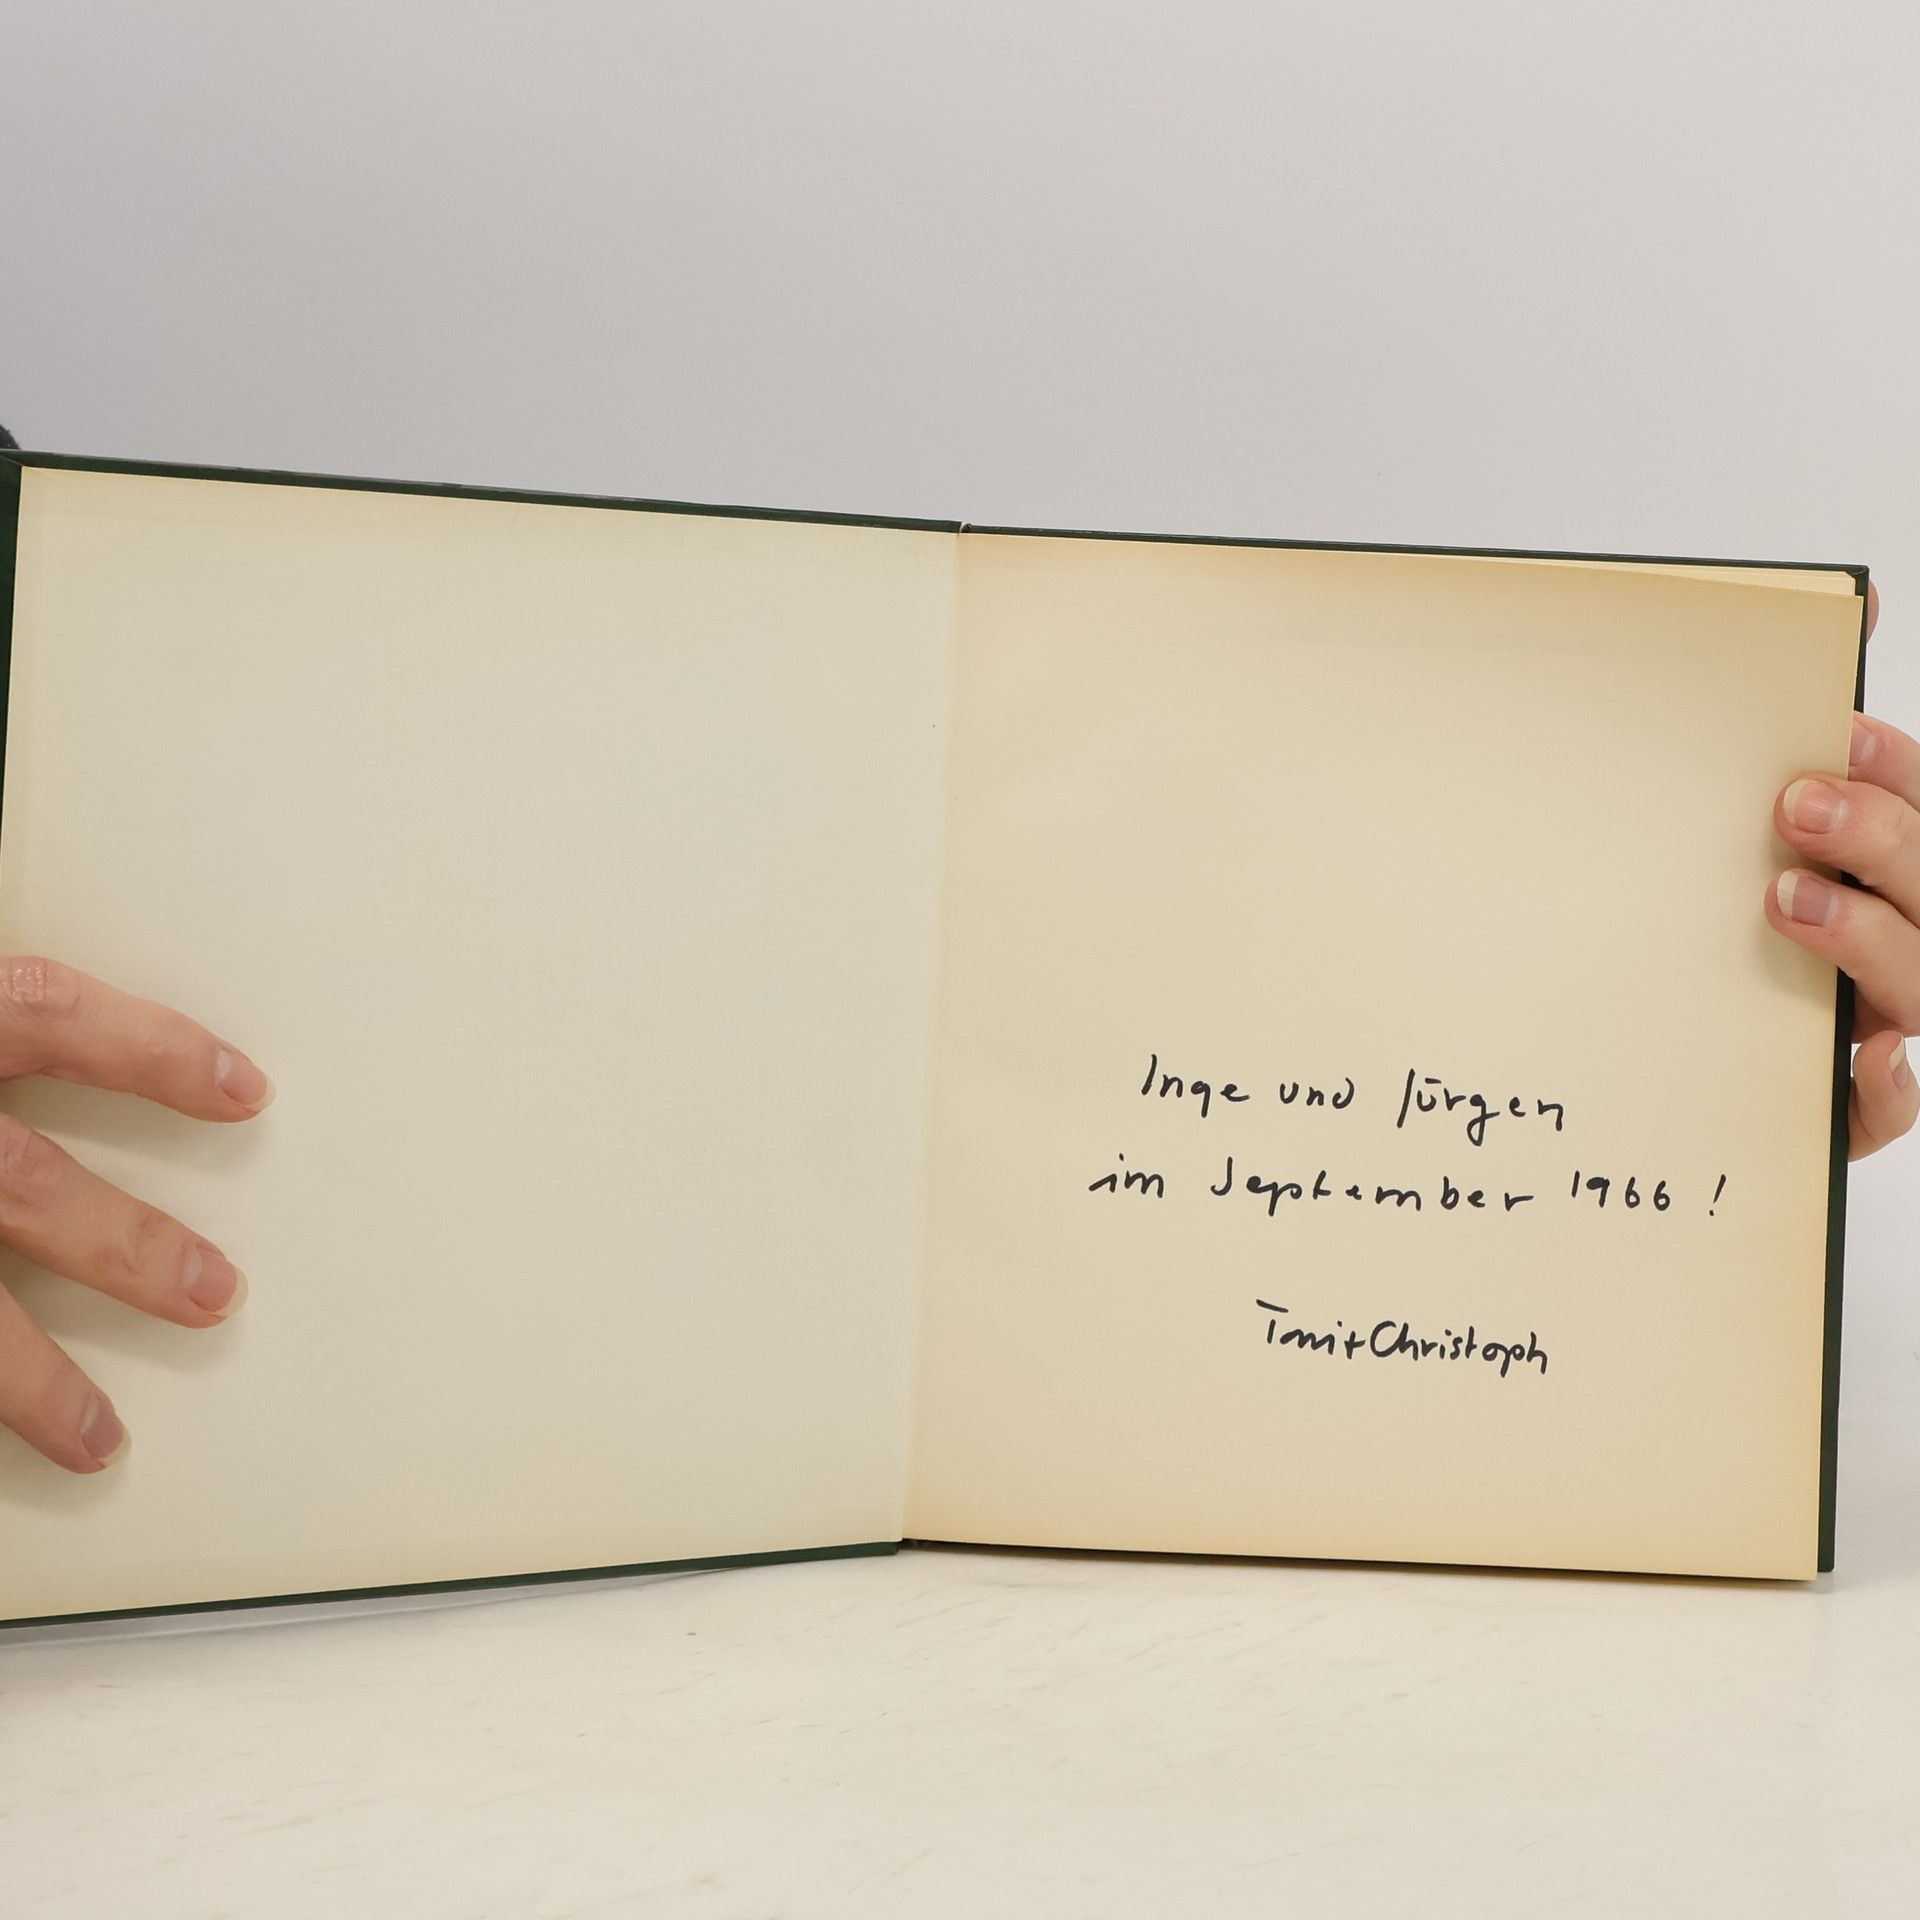 Inge und Jürgen
im September 1966 !
Toni + Christoph